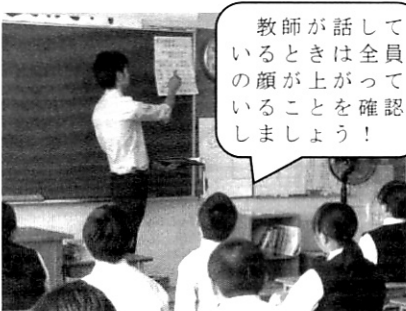 教師が話して
いるときは全員
の顔が上がって
いることを確認
しましょう！